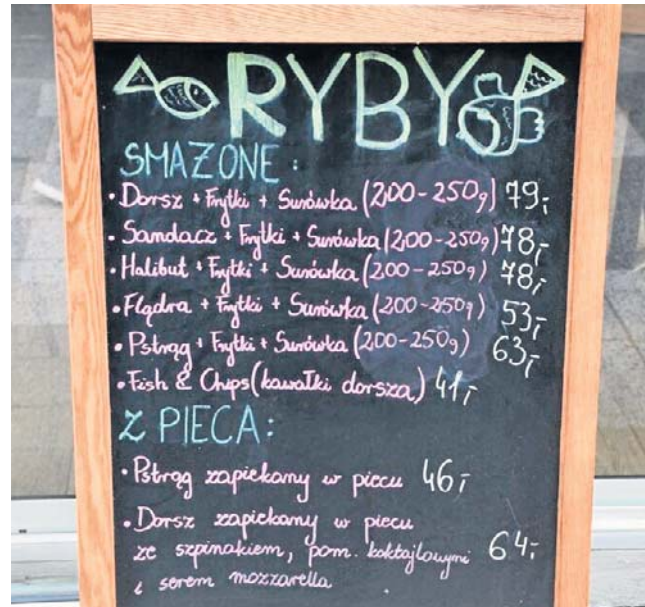 RYBY
SMAŻONE:
• Dorsz + Frytki + Surówka (200-250g) 79,-
• Sandacz + Frytki + Surówka (200-250g) 78,-
• Halibut + Frytki + Surówka (200-250g) 78,-
• Flądra + Frytki + Surówka (200-250g) 53,-
• Pstrąg + Frytki + Surówka (200-250g) 63,-
• Fish & Chips (kawałki dorsza) 41,-
Z PIECA:
• Pstrąg zapiekany w piecu 46,-
• Dorsz zapiekany w piecu
ze szpinakiem, pom. koktajlowymi 64,-
i serem mozzarella